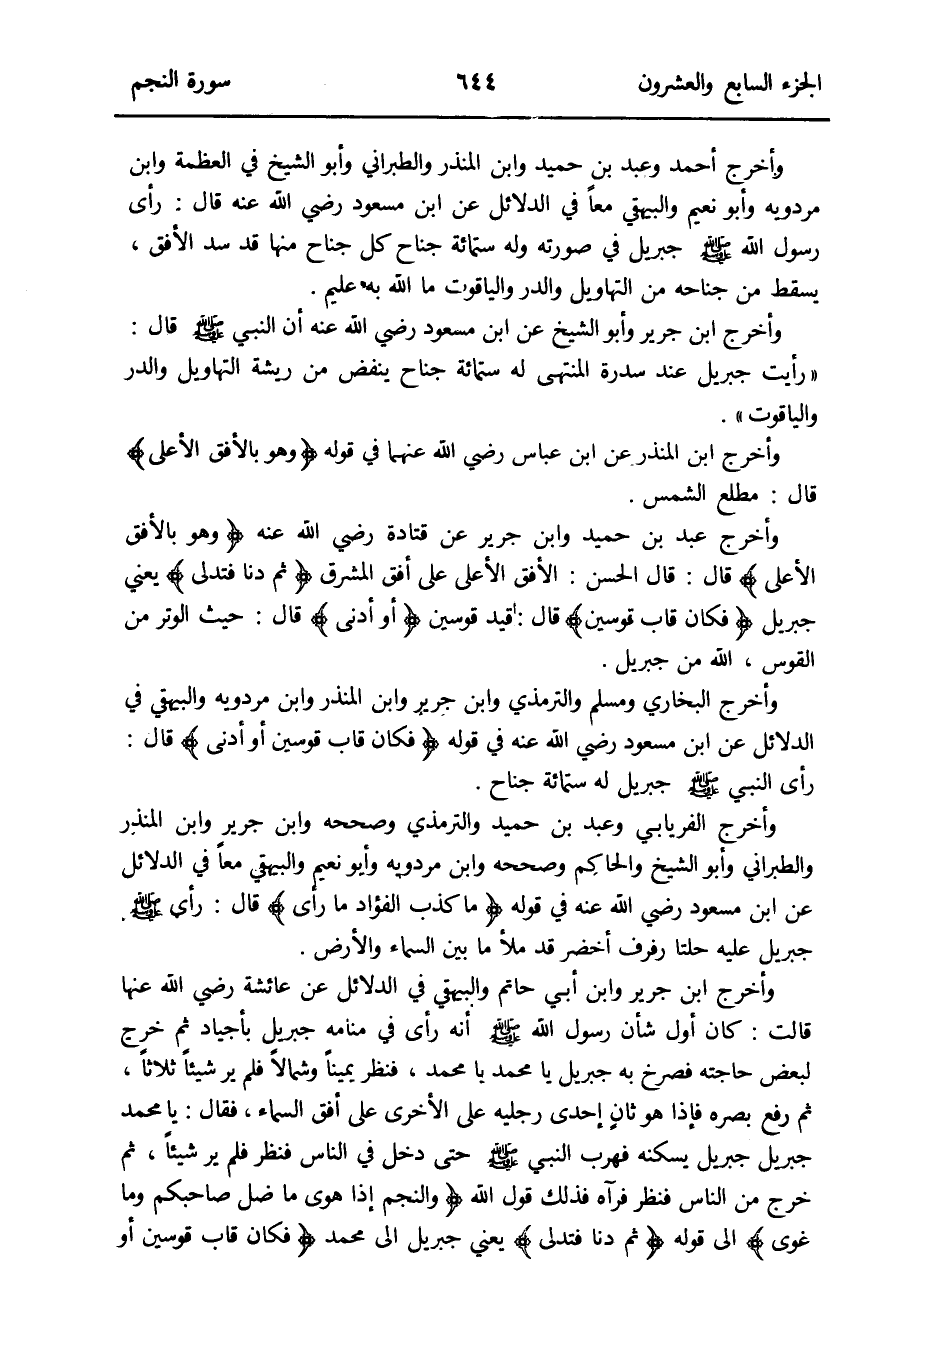 الجزء السابع والعشرون ٦٤٤ سورة النجم
وأخرج أحمد وعبد بن حميد وابن المنذر والطبراني وأبو الشيخ في العظمة وابن
مردويه وأبو نعيم والبيهقي معاً في الدلائل عن ابن مسعود رضي الله عنه قال : رأى
رسول الله ﷺ جبريل في صورته وله ستمائة جناح كل جناح منها قد سد الأفق ،
يسقط من جناحه من التهاويل والدر والياقوت ما الله به عليم .
وأخرج ابن جرير وأبو الشيخ عن ابن مسعود رضي الله عنه أن النبي ﷺ قال :
« رأيت جبريل عند سدرة المنتهى له ستمائة جناح ينفض من ريشة التهاويل والدر
والياقوت » .
وأخرج ابن المنذر عن ابن عباس رضي الله عنهما في قوله ﴿ وهو بالأفق الأعلى ﴾
قال : مطلع الشمس .
وأخرج عبد بن حميد وابن جرير عن قتادة رضي الله عنه ﴿ وهو بالأفق
الأعلى ﴾ قال : قال الحسن : الأفق الأعلى على أفق المشرق ﴿ ثم دنا فتدلى ﴾ يعني
جبريل ﴿ فكان قاب قوسين ﴾ قال : قيد قوسين ﴿ أو أدنى ﴾ قال : حيث الوتر من
القوس ، الله من جبريل .
وأخرج البخاري ومسلم والترمذي وابن جرير وابن المنذر وابن مردويه والبيهقي في
الدلائل عن ابن مسعود رضي الله عنه في قوله ﴿ فكان قاب قوسين أو أدنى ﴾ قال :
رأى النبي ﷺ جبريل له ستمائة جناح .
وأخرج الفريابي وعبد بن حميد والترمذي وصححه وابن جرير وابن المنذر
والطبراني وأبو الشيخ والحاكم وصححه وابن مردويه وأبو نعيم والبيهقي معاً في الدلائل
عن ابن مسعود رضي الله عنه في قوله ﴿ ما كذب الفؤاد ما رأى ﴾ قال : رأي ﷺ
جبريل عليه حلتا رفرف أخضر قد ملأ ما بين السماء والأرض .
وأخرج ابن جرير وابن أبي حاتم والبيهقي في الدلائل عن عائشة رضي الله عنها
قالت : كان أول شأن رسول الله ﷺ أنه رأى في منامه جبريل بأجياد ثم خرج
لبعض حاجته فصرخ به جبريل يا محمد يا محمد ، فنظر يميناً وشمالاً فلم ير شيئاً ثلاثاً ،
ثم رفع بصره فإذا هو ثانٍ إحدى رجليه على الأخرى على أفق السماء ، فقال : يا محمد
جبريل جبريل يسكنه فهرب النبي ﷺ حتى دخل في الناس فنظر فلم ير شيئاً ، ثم
خرج من الناس فنظر فرآه فذلك قول الله ﴿ والنجم إذا هوى ما ضل صاحبكم وما
غوى ﴾ الى قوله ﴿ ثم دنا فتدلى ﴾ يعني جبريل الى محمد ﴿ فكان قاب قوسين أو